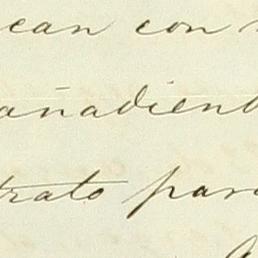 can con
añadiend
trato para